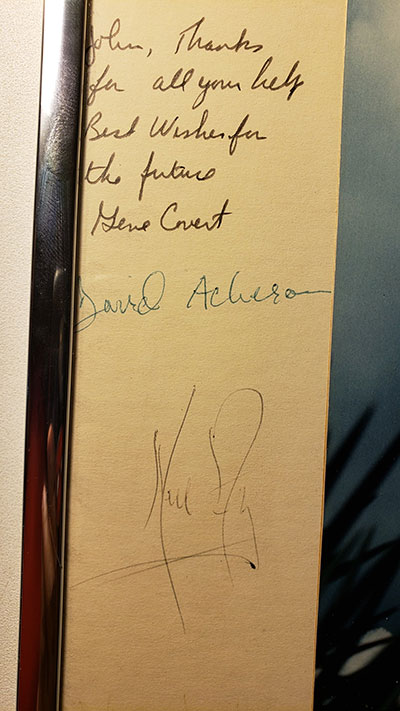 John, Thanks
for all your help
Best Wishes for
the future
Gene Covert
David Acheson